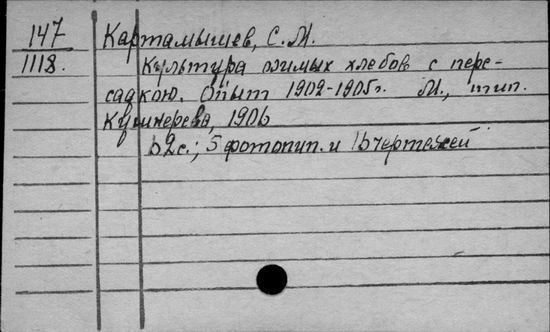 147
1118.
Картамышев, С. М.
Культура озимых хлебов с пере-
садкою. Опыт 1902-1905г. М., тип.
Кушнерева, 1906
62с.; 5 фототип. и 16 чертежей